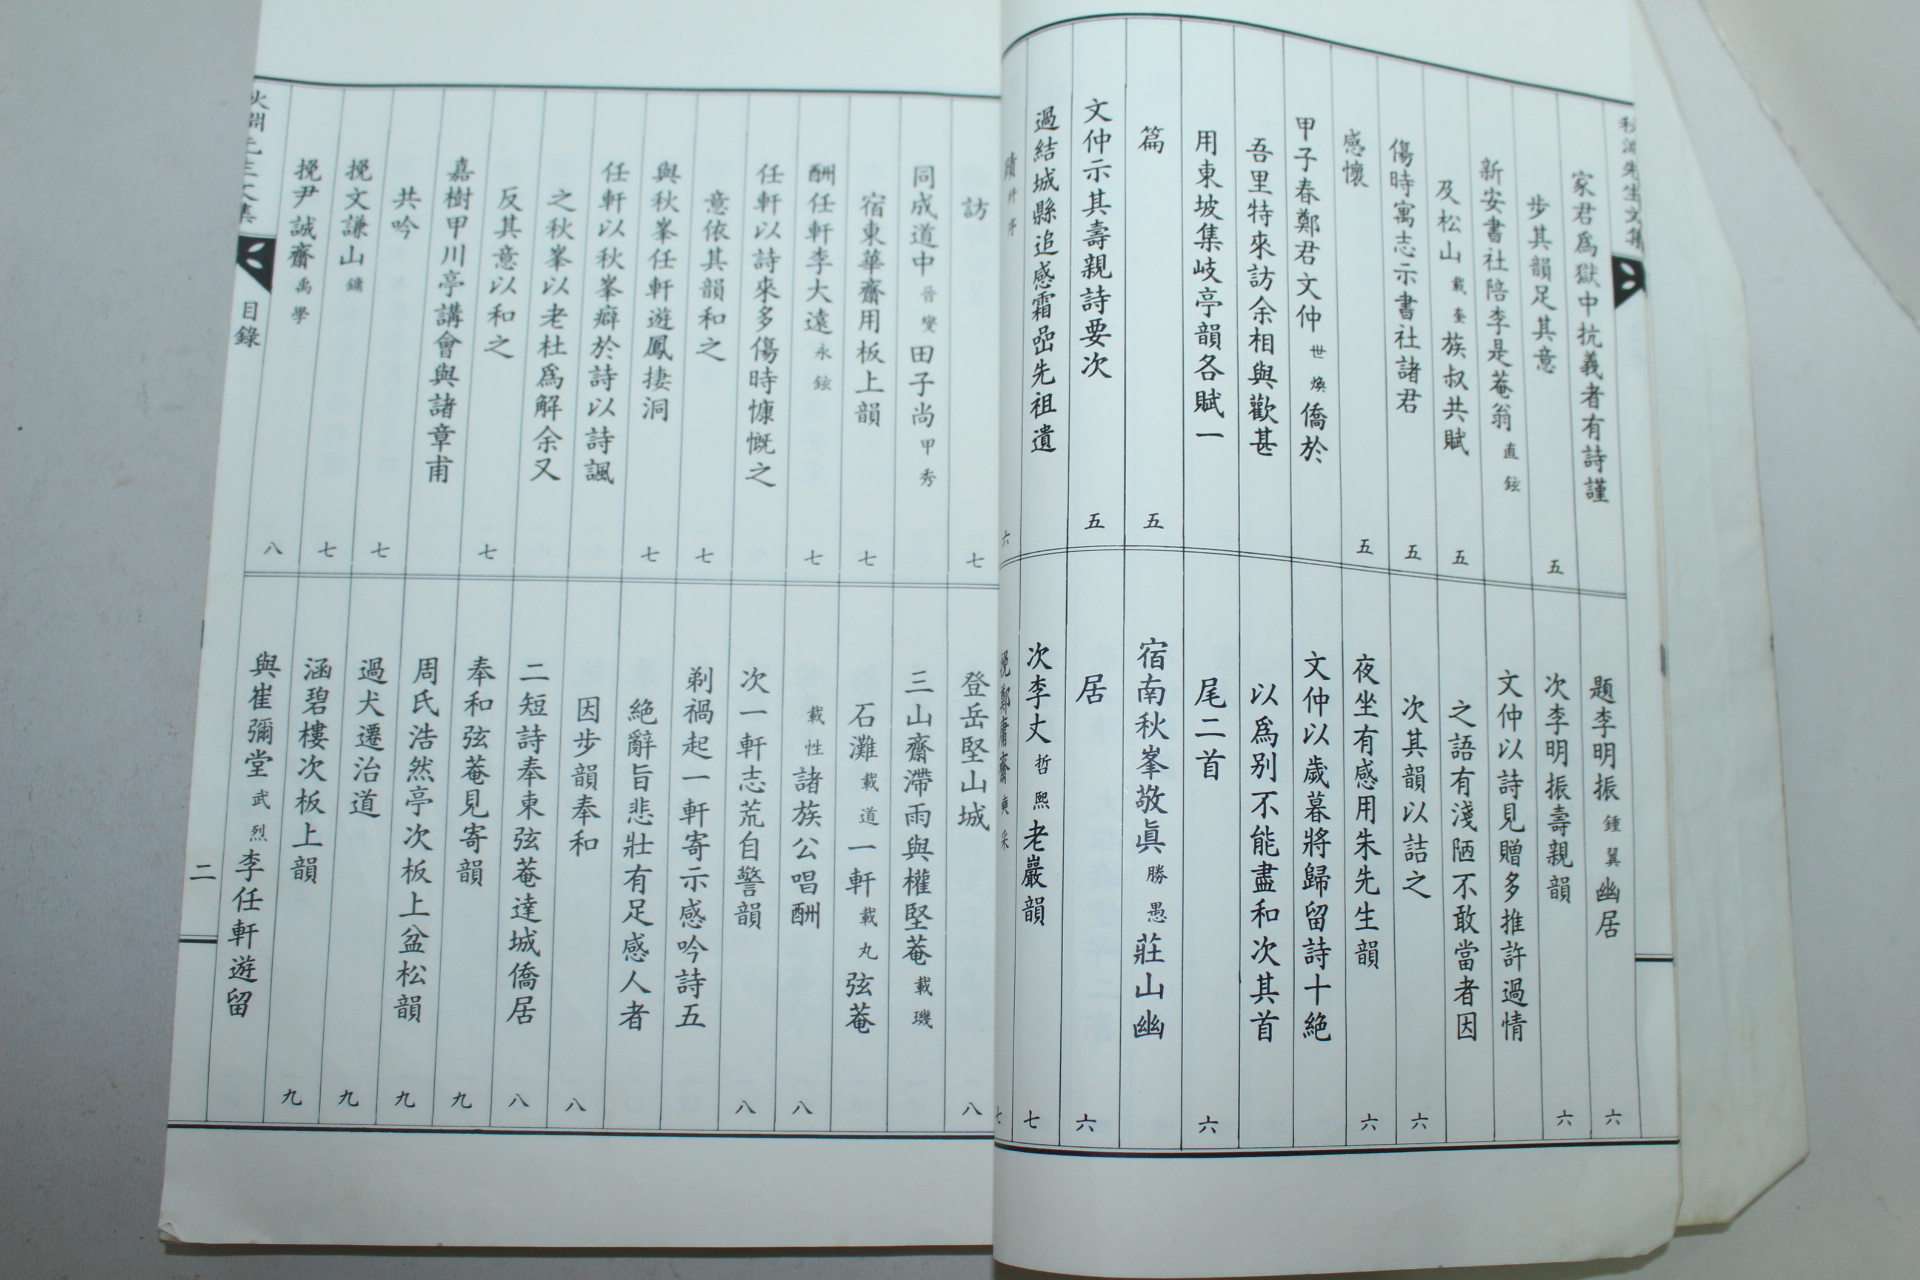 家君爲獄中抗義者有詩謹
步其韻足其意 五
新安書社陪李是菴翁直鉉
及松山載奎族叔共賦 五
傷時寓志示書社諸君 五
感懷 五
甲子春鄭君文仲世煥僑於
吾里特來訪余相與歡甚
用東坡集岐亭韻各賦一
篇 五
文仲示其壽親詩要次 五
過結城縣追感霜嵒先祖遺
蹟 六
題李明振鍾翼幽居 六
次李明振壽親韻 六
文仲以詩見贈多推許過情
之語有淺陋不敢當者因
次其韻以詰之 六
夜坐有感用朱先生韻 六
文仲以歲暮將歸留詩十絶
以爲別不能盡和次其首
尾二首 六
宿南秋峯敬眞勝愚莊山幽
居 六
次李丈哲熙老巖韻 七
挽鄭庸齋 七
訪 七
同成道中晉燮田子尚甲秀
宿東華齋用板上韻 七
酬任軒李大遠永鉉 七
任軒以詩來多傷時慷慨之
意依其韻和之 七
與秋峯任軒遊鳳捿洞 七
任軒以秋峯癖於詩以詩諷
之秋峯以老杜爲解余又
反其意以和之 七
嘉樹甲川亭講會與諸章甫
共吟 七
挽文謙山鏞 七
挽尹誠齋禹學 八
登岳堅山城 八
三山齋滯雨與權堅菴載璣
石灘載道一軒載丸弦菴
載性諸族公唱酬 八
次一軒志荒自警韻 八
剃禍起一軒寄示感吟詩五
絶辭旨悲壯有足感人者
因步韻奉和 八
二短詩奉東弦菴達城僑居 八
奉和弦菴見寄韻 九
周氏浩然亭次板上盆松韻 九
過犬遷治道 九
涵碧樓次板上韻 九
與崔彌堂武烈李任軒遊留
目錄
二